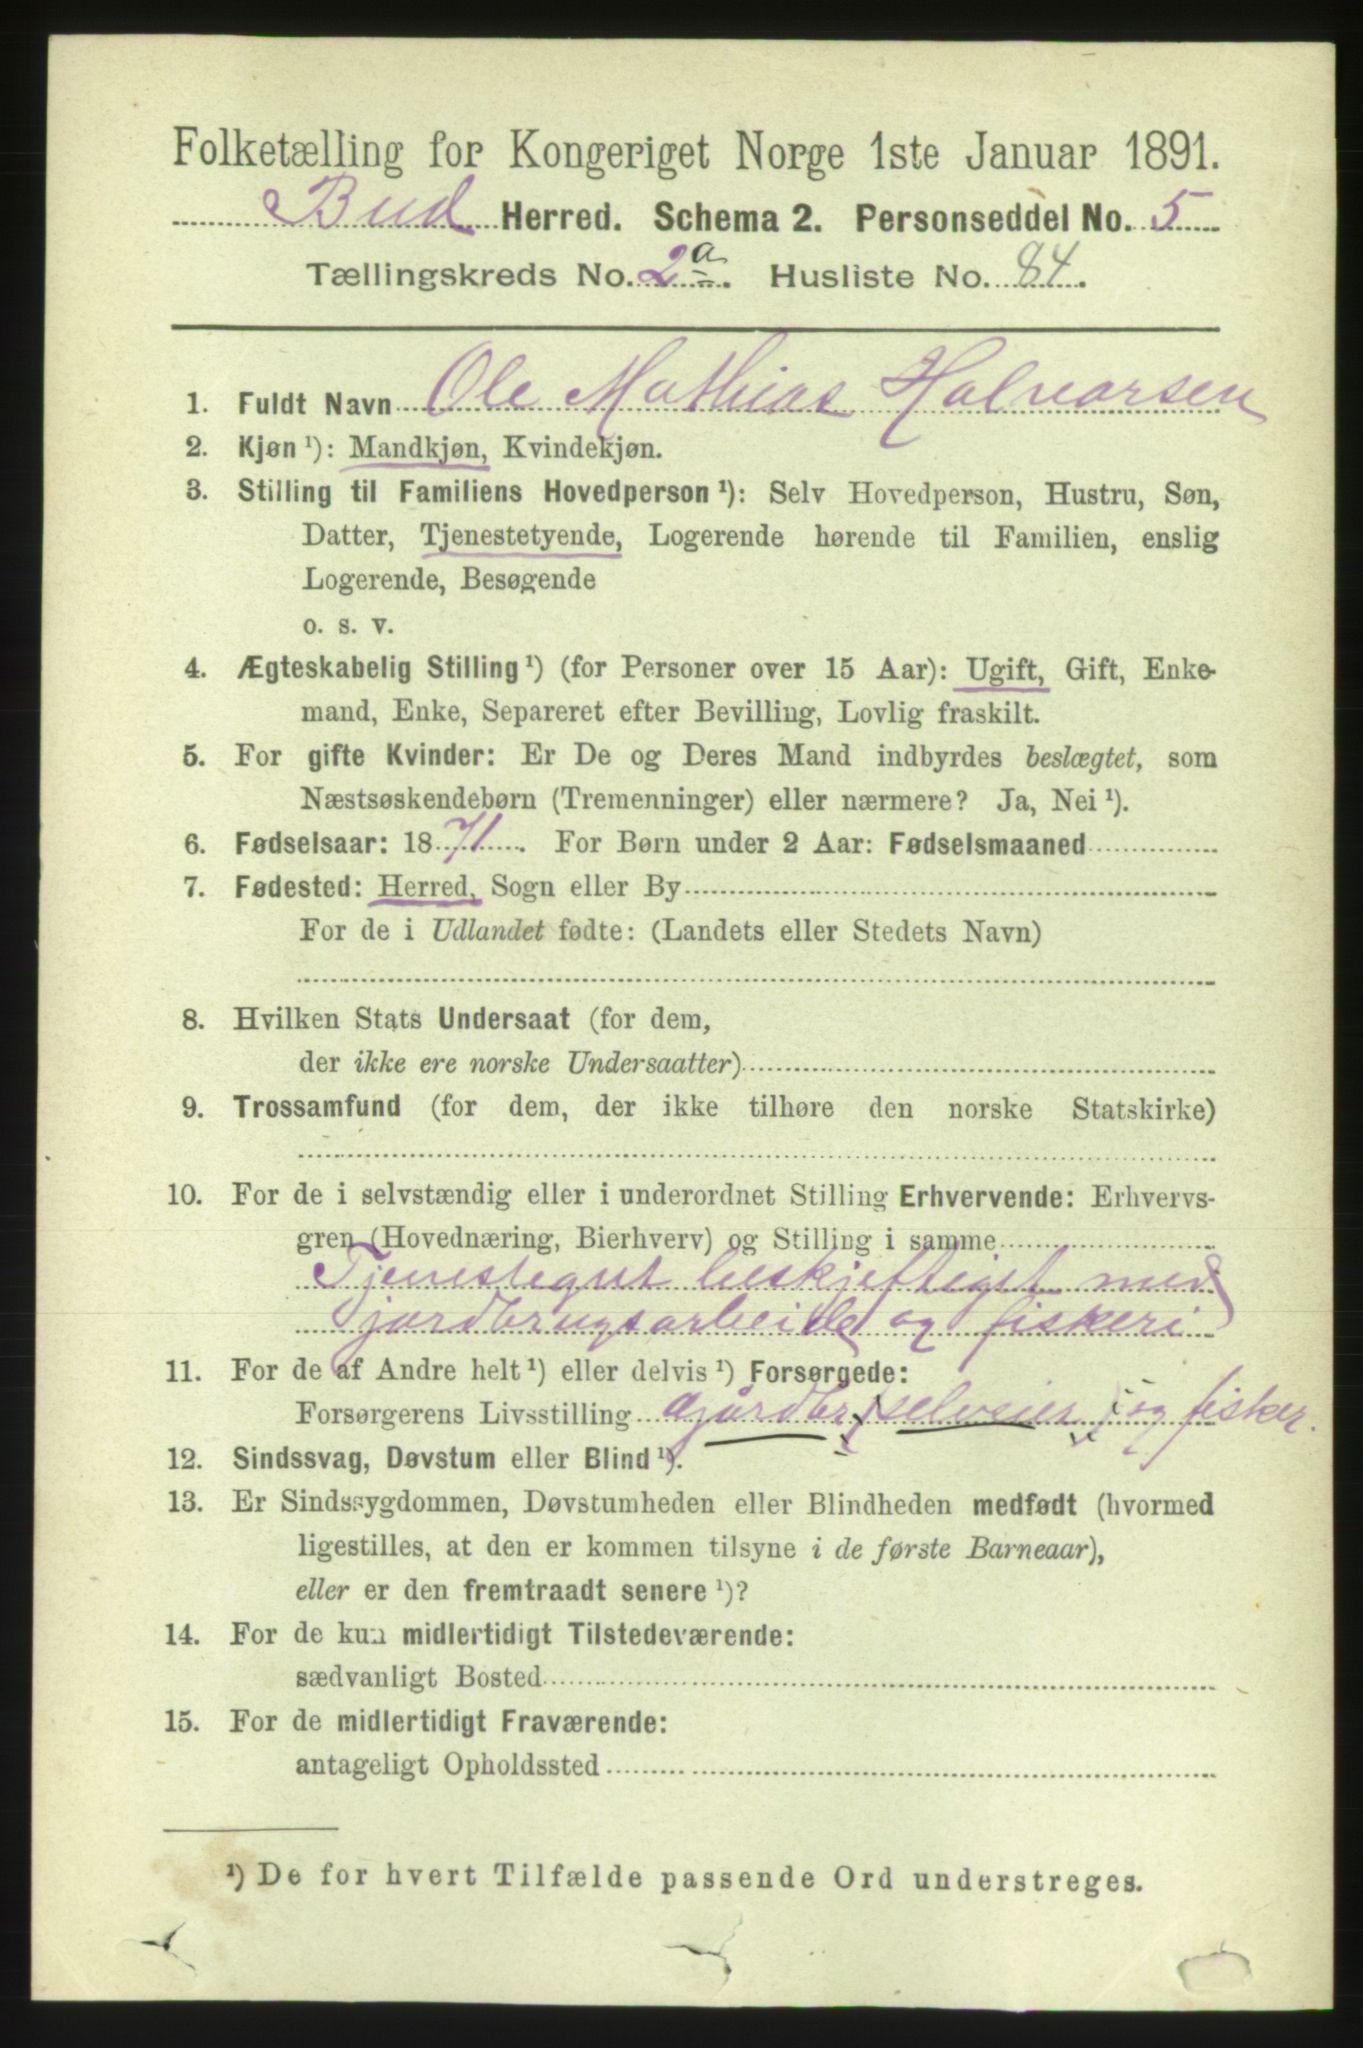 Folketælling for Kongeriget Norge 1ste Januar 1891.
Bud Herred. Schema 2. Personseddel No. 5
Tællingskreds No. 2a. Husliste No. 84.
1. Fuldt Navn Ole Mathias Halvorsen
2. Kjøn ¹): Mandkjøn, Kvindekjøn.
3. Stilling til Familiens Hovedperson ¹): Selv Hovedperson, Hustru, Søn,
Datter, Tjenestetyende, Logerende hørende til Familien, enslig
Logerende, Besøgende
o. s. v.
4. Ægteskabelig Stilling ¹) (for Personer over 15 Aar): Ugift, Gift, Enke-
mand, Enke, Separeret efter Bevilling, Lovlig fraskilt.
5. For gifte Kvinder: Er De og Deres Mand indbyrdes beslægtet, som
Næstsøskendebørn (Tremenninger) eller nærmere? Ja, Nei ¹).
6. Fødselsaar: 1871. For Børn under 2 Aar: Fødselsmaaned
7. Fødested: Herred, Sogn eller By
For de i Udlandet fødte: (Landets eller Stedets Navn)
8. Hvilken Stats Undersaat (for dem,
der ikke ere norske Undersaatter)
9. Trossamfund (for dem, der ikke tilhøre den norske Statskirke)
10. For de i selvstændig eller i underordnet Stilling Erhvervende: Erhvervs-
gren (Hovednæring, Bierhverv) og Stilling i samme
Tjenestegut beskjeftiget med
jordbrugsarbeide og fiskeri
11. For de af Andre helt ¹) eller delvis ¹) Forsørgede:
Forsørgerens Livsstilling gjårdbr (selveier) og fisker.
12. Sindssvag, Døvstum eller Blind ¹).
13. Er Sindssygdommen, Døvstumheden eller Blindheden medfødt (hvormed
ligestilles, at den er kommen tilsyne i de første Barneaar),
eller er den fremtraadt senere ¹)?
14. For de kun midlertidigt Tilstedeværende:
sædvanligt Bosted
15. For de midlertidigt Fraværende:
antageligt Opholdssted
¹) De for hvert Tilfælde passende Ord understreges.